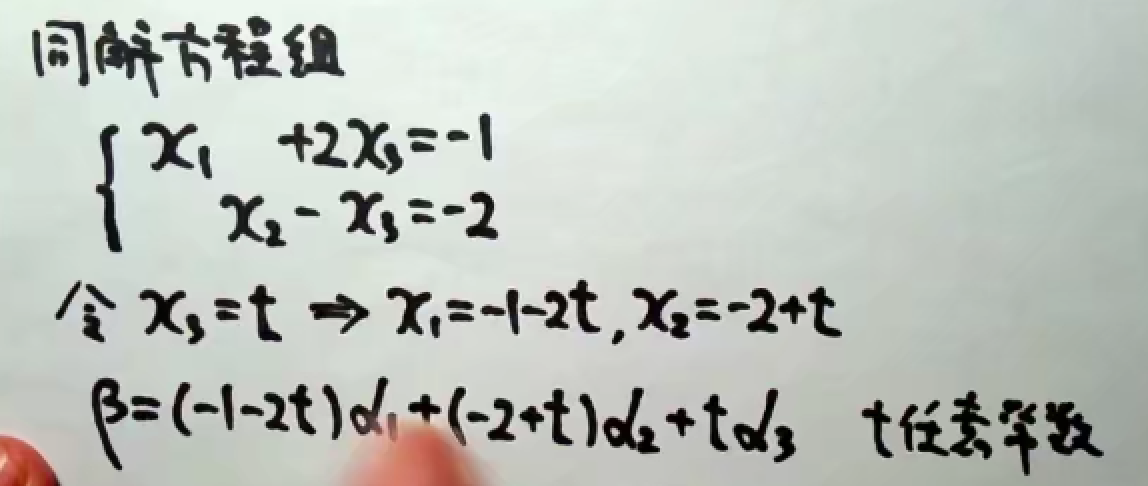 同解方程组
{ x₁ +2x₃=-1
x₂- x₃=-2
令 x₃=t ⇒ x₁=-1-2t, x₂=-2+t
β=(-1-2t)α₁+(-2+t)α₂+tα₃ t任意常数